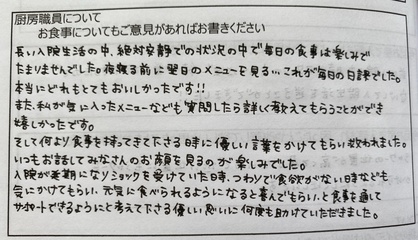 厨房職員について
お食事についてもご意見があればお書きください
長い入院生活の中、絶対安静での状況の中で毎日の食事は楽しみで
たまりませんでした。夜寝る前に翌日のメニューを見る…これが毎日の日課でした。
本当にどれもとてもおいしかったです!!
また、私が気に入ったメニューなども質問したら詳しく教えてもらうことができ
嬉しかったです。
そして何より食事を持ってきて下さる時に優しい言葉をかけてもらい救われました。
いつもお話してみなさんのお顔を見るのが楽しみでした。
入院が長期になりショックを受けていた時、つわりで食欲がない時なども
気にかけてもらい、元気に食べられるようになると喜んでもらい、と食事を通して
サポートできるようにと考えて下さる優しい思いに何度も助けていただきました。